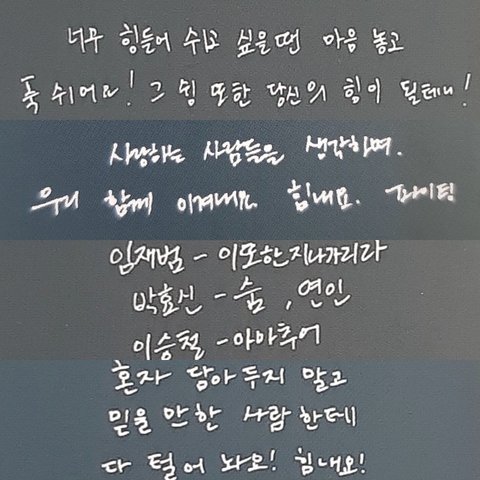 너무 힘들어 쉬고 싶을땐 마음 놓고
푹 쉬어요! 그 쉼 또한 당신의 힘이 될테니!
사랑하는 사람들을 생각하며.
우리 함께 이겨내요. 힘내요. 파이팅
임재범 - 이또한지나가리라
박효신 - 숨, 연인
이승철 - 아마추어
혼자 담아두지 말고
믿을 만한 사람한테
다 털어 놔요! 힘내요!